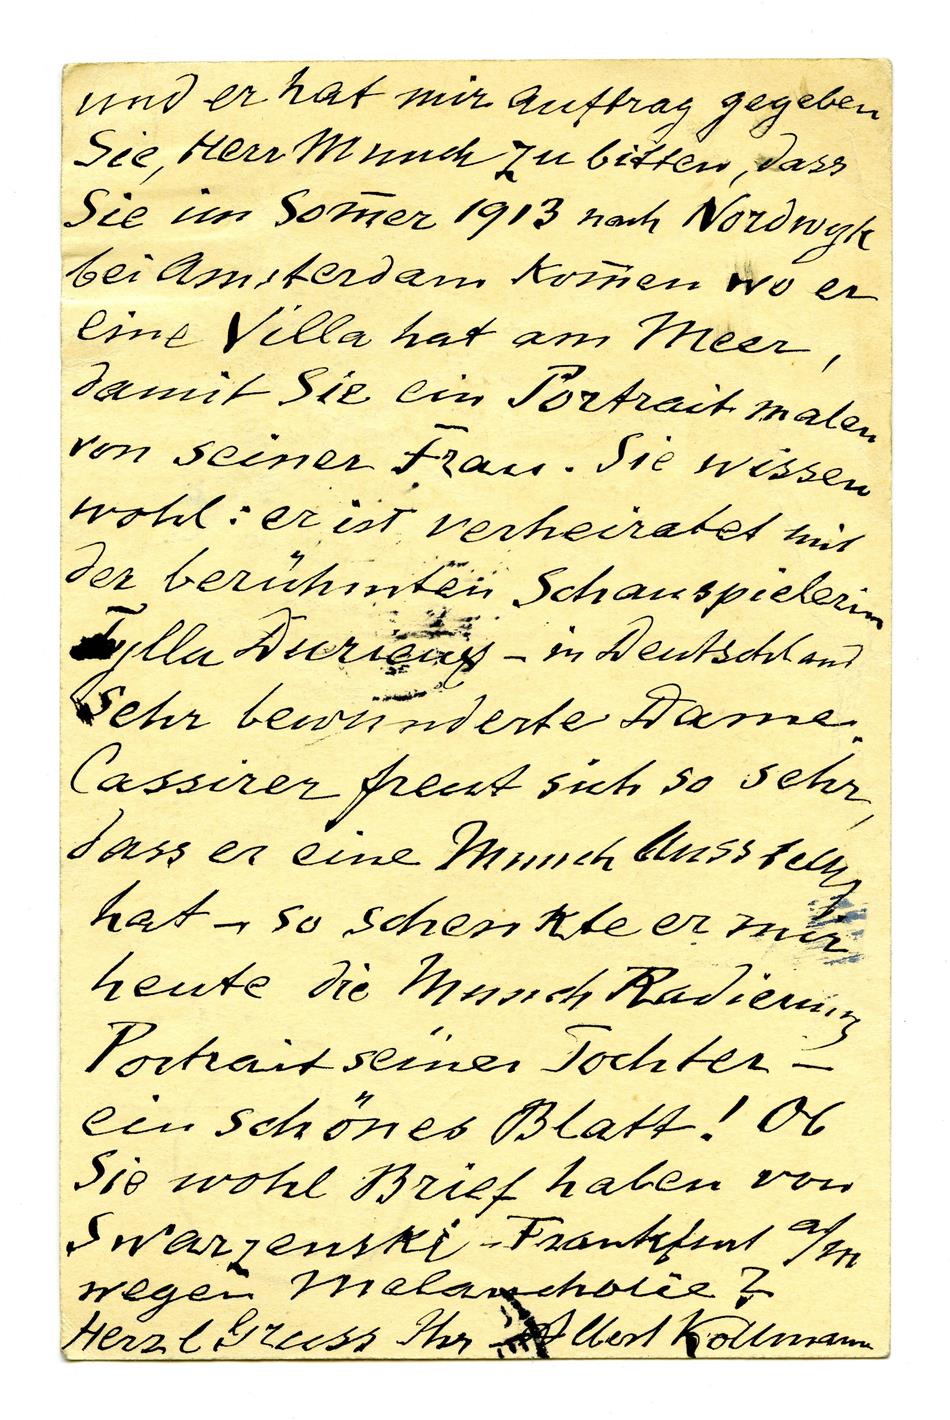 und er hat mir Auftrag gegeben
Sie, Herr Munch zu bitten, dass
Sie im Som̄er 1913 nach Nordwyk
bei Amsterdam kom̄en wo er
eine Villa hat am Meer,
damit Sie ein Portrait malen
von seiner Frau. Sie wissen
wohl: er ist verheiratet mit
der berühmten Schauspielerin
Tylla Durieux – in Deutschland
sehr bewunderte Dame.
Cassirer freut sich so sehr,
dass er eine Munch Ausstellg
hat – so schenkte er mir
heute die Munch Radierung
Portrait seiner Tochter –
ein schönes Blatt! Ob
Sie wohl Brief haben von
Swarzenski – Frankfurt a/M
wegen Melancholie?
Herzl Gruss Ihr Albert Kollmann